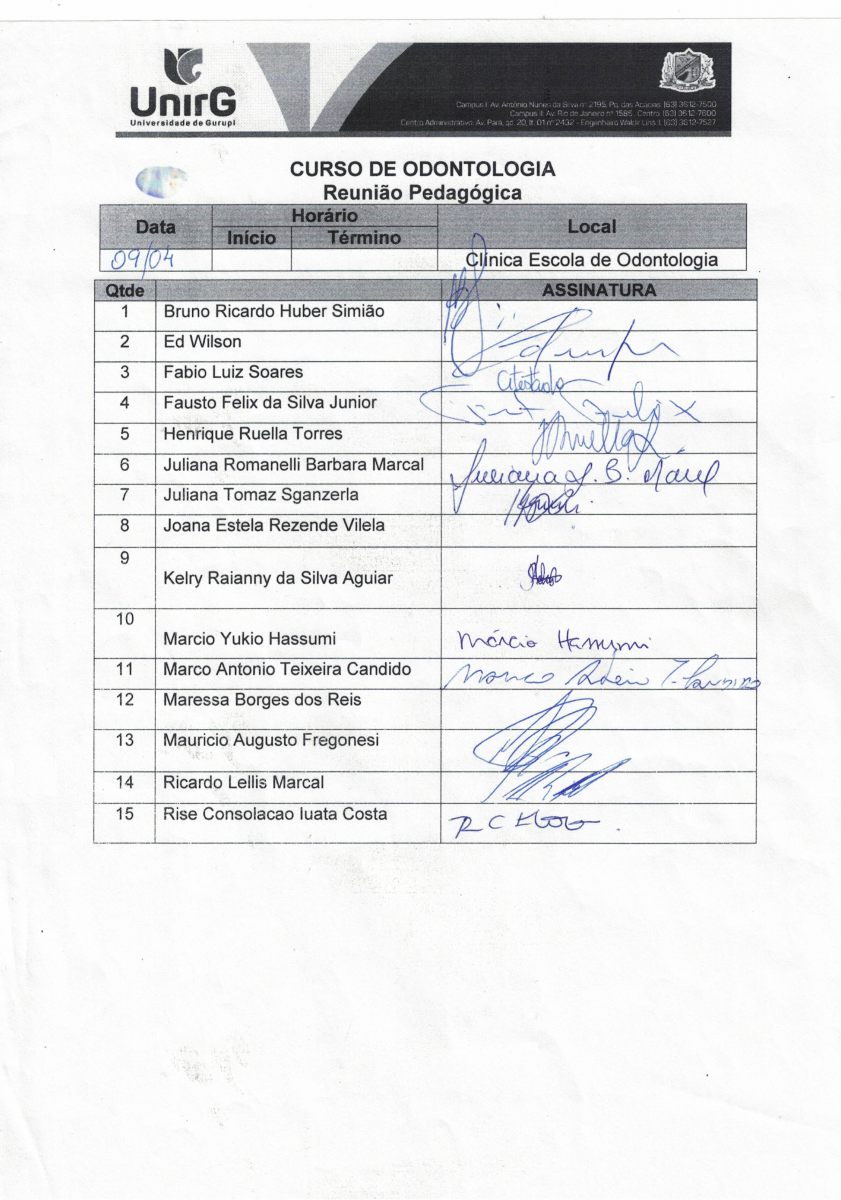 UnirG
Universidade de Gurupi
Campus I: Av. Antônio Nunes da Silva nº 2195, Pq. das Acácias (63) 3612-7600
Campus II: Av. Rio de Janeiro nº 1585, Centro (63) 3612-7600
Centro Administrativo: Av. Pará, qd. 20, lt. 01 nº 2432 - Engenheiro Waldir Lins | (63) 3612-7527
CURSO DE ODONTOLOGIA
Reunião Pedagógica
Data Horário Local
Início Término
09/04 Clínica Escola de Odontologia
Qtde ASSINATURA
1 Bruno Ricardo Huber Simião
2 Ed Wilson
3 Fabio Luiz Soares Atestado
4 Fausto Felix da Silva Junior
5 Henrique Ruella Torres
6 Juliana Romanelli Barbara Marcal Juliana R. B. Marçal
7 Juliana Tomaz Sganzerla
8 Joana Estela Rezende Vilela
9 Kelry Raianny da Silva Aguiar
10 Marcio Yukio Hassumi Márcio Hassumi
11 Marco Antonio Teixeira Candido Marco
12 Maressa Borges dos Reis
13 Mauricio Augusto Fregonesi
14 Ricardo Lellis Marcal
15 Rise Consolacao Iuata Costa